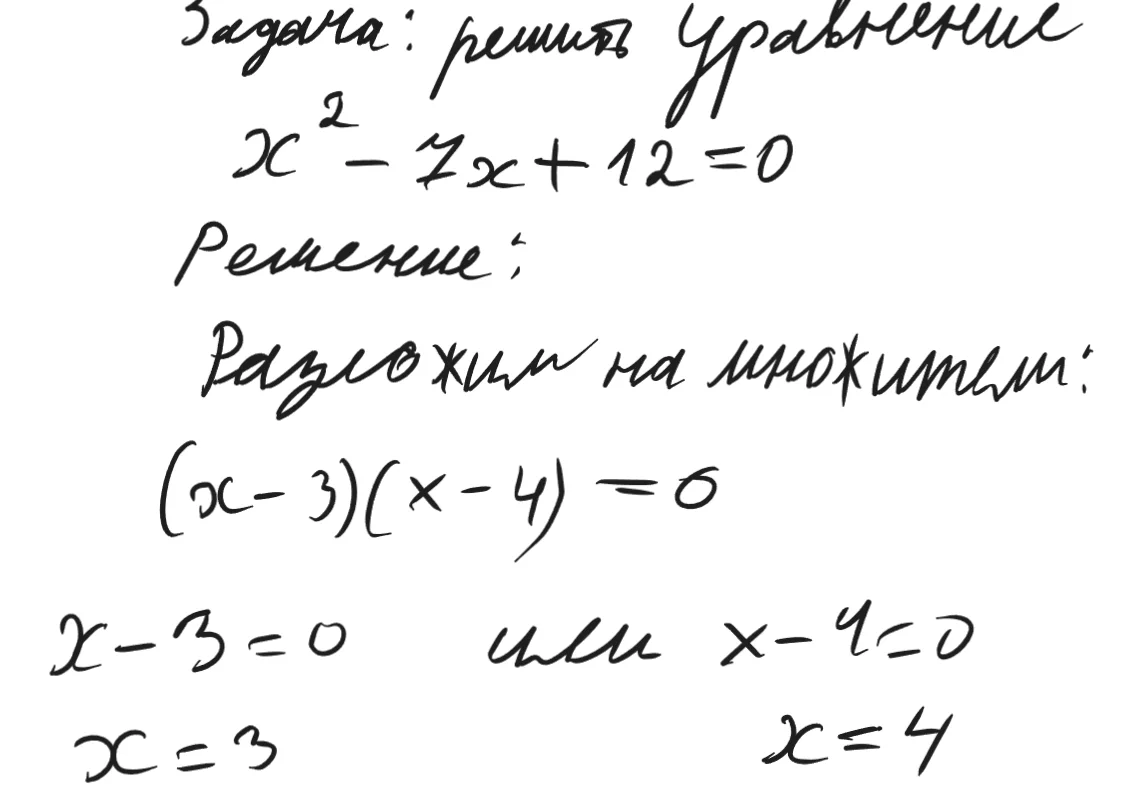 Задача: решить уравнение
x² - 7x + 12 = 0
Решение:
Разложим на множители:
(x - 3)(x - 4) = 0
x - 3 = 0 или x - 4 = 0
x = 3 x = 4